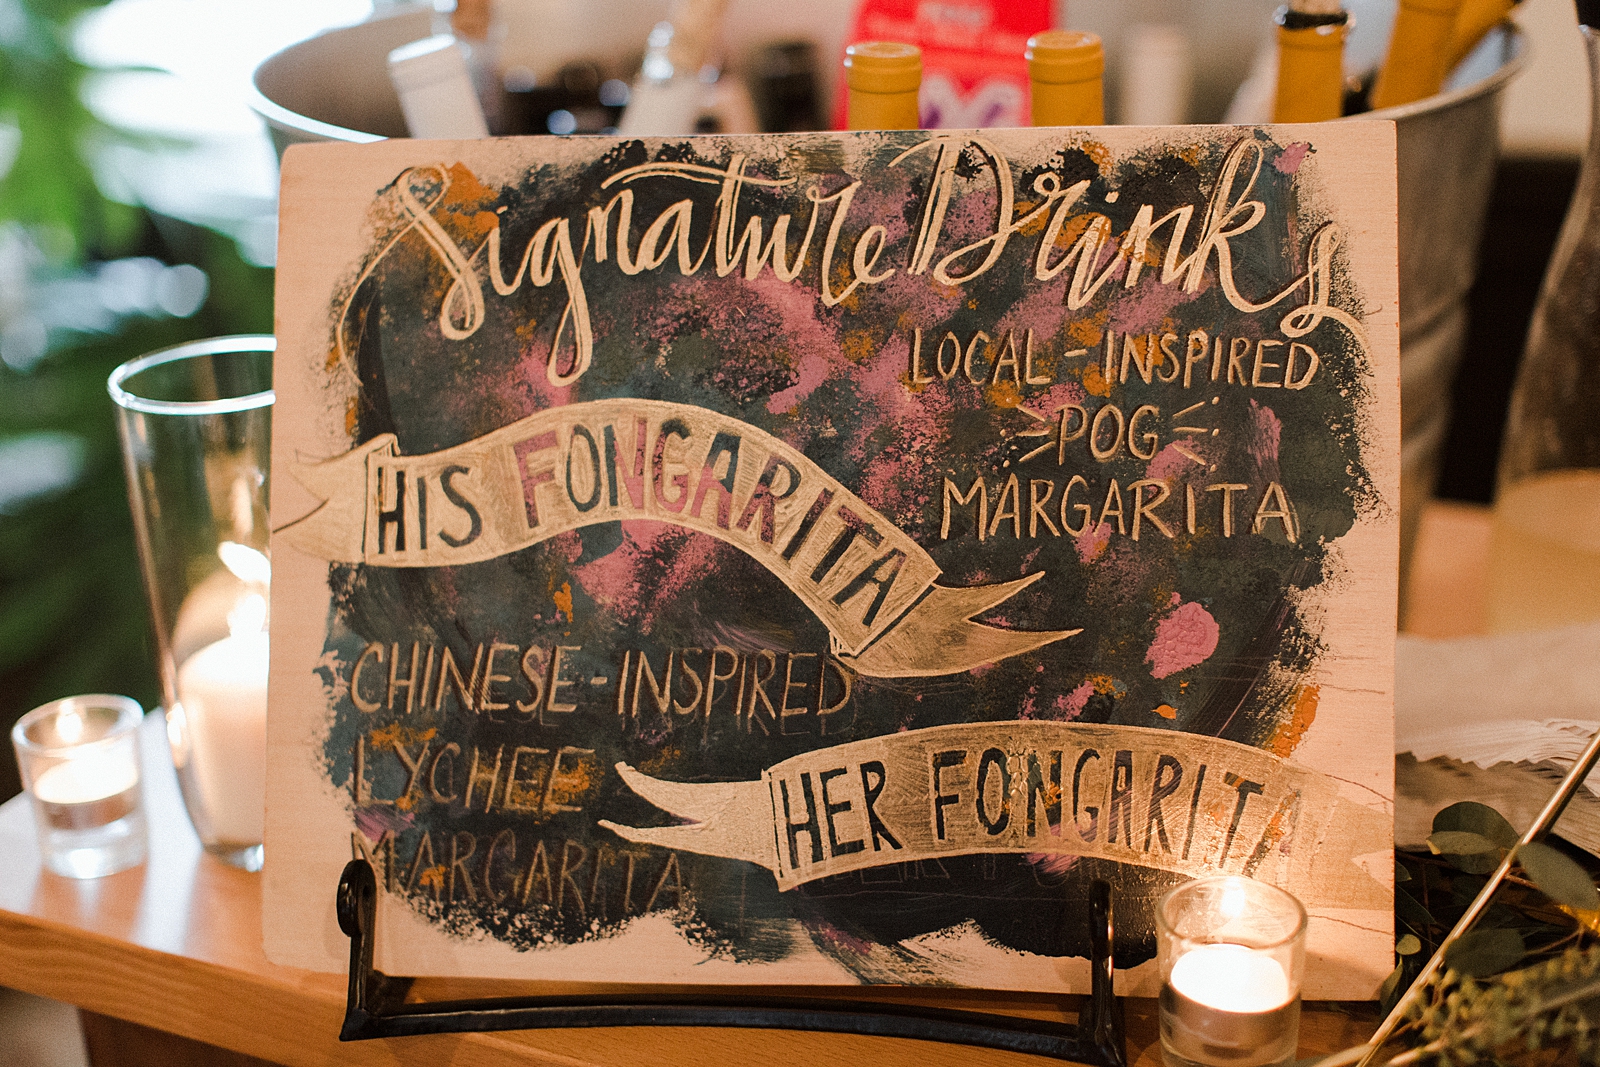 Signature Drinks
HIS FONGARITA
LOCAL-INSPIRED
POG
MARGARITA
HER FONGARITA
CHINESE-INSPIRED
LYCHEE
MARGARITA